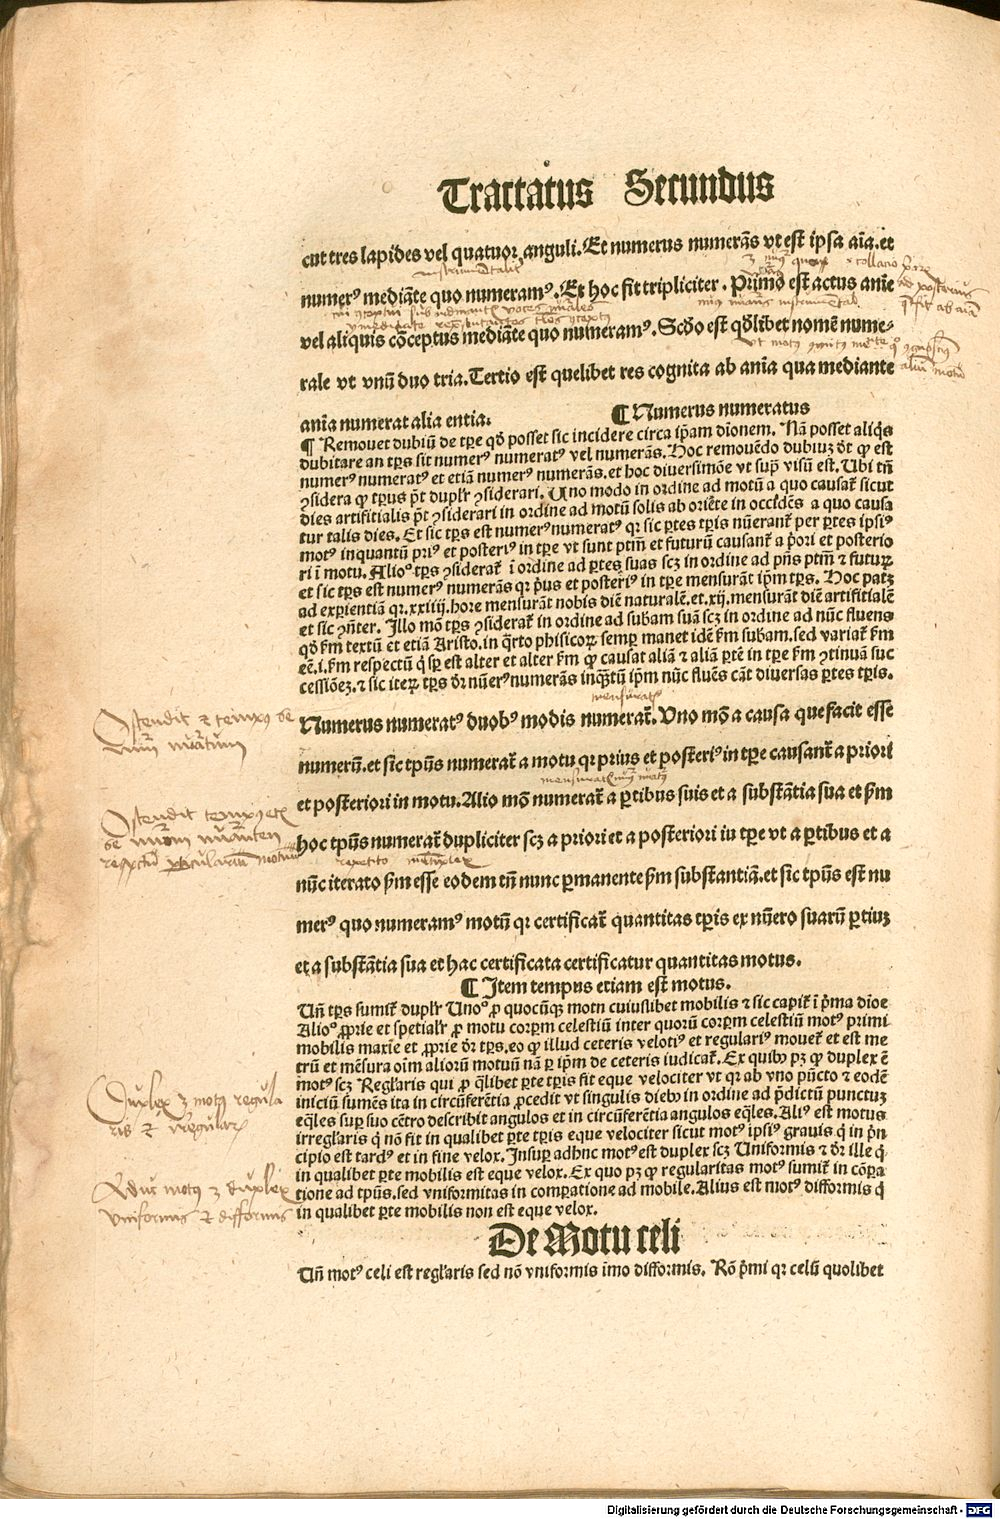 Tractatus Secundus
cut tres lapides vel quatuor anguli. Et numerus numerās vt est ipsa aīa. et
numerꝰ mediāte quo numeramꝰ. Et hoc fit tripliciter. Primo est actus anīe
vel aliquis cōceptus mediāte quo numeramꝰ. Scďo est qďlibet nomē nume⸗
rale vt vnū duo tria. Tertio est quelibet res cognita ab anīa qua mediante
anīa numerat alia entia.
¶ Numerus numeratus
¶ Remouet dubiū de tꝑe qď posset sic incidere circa ip̄am dīonem. Nā posset aliq̄s
dubitare an tp̄s sit numerꝰ numeratꝰ vel numerās. Hoc remouēdo dubiuꝫ ďr ꝙ est
numerꝰ numeratꝰ et etiā numerꝰ numerās. et hoc diuersimōe vt supͣ visū est. Ubi tn̄
ꝯsidera ꝙ tp̄us p̄t duplr̄ ꝯsiderari. Uno modo in ordine ad motū a quo causat̄ sicut
dies artificialis p̄t ꝯsiderari in ordine ad motū solis ab oriēte in occidēs a quo causa
tur talis dies. Et sic tp̄s est numerꝰ numeratꝰ qꝛ sic ꝑtes tꝑis nūerant̄ per ꝑtes ipsiꝰ
motꝰ inquantū priꝰ et posteriꝰ in tꝑe vt sunt ptm̄ et futurū causant̄ a p̄ori et posterio
ri ī motu. Alioº tp̄s ꝯsiderat̄ ī ordine ad ꝑtes suas scꝫ in ordine ad pn̄s ptm̄ ⁊ futuꝝ
et sic tp̄s est numerꝰ numerās qꝛ p̄us et posteriꝰ in tꝑe mensurāt ip̄m tp̄s. Hoc patꝫ
ad exꝑientiā qꝛ. xxiiij. hore mensurāt nobis diē naturalē. et. xij. mensurāt diē artificialē
et sic ꝯn̄ter. Illo mō tp̄s ꝯsiderat̄ in ordine ad subam suā scꝫ in ordine ad nūc fluens
qď ẜm textū et etiā Aristo. in q̄rto phisicoꝝ semꝑ manet idē ẜm subam. sed variat̄ ẜm
eē. i. ẜm respectū q̄ sꝑ est alter et alter ẜm ꝙ causat aliā ⁊ aliā ꝑtē in tꝑe ẜm ꝯtinuā suc
cessiōeꝫ. ⁊ sic iteꝝ tp̄s ďr nūerꝰ numerās inq̄tū ip̄m nūc fluēs cāt diuersas ꝑtes tꝑis.
Numerus numeratꝰ duobꝰ modis numerat̄. Uno mō a causa que facit esse
numerū. et sic tp̄us numerat̄ a motu qꝛ prius et posteriꝰ in tꝑe causant̄ a priori
et posteriori in motu. Alio mō numerat̄ a ꝑtibus suis et a substātia sua et ẜm
hoc tp̄us numerat̄ dupliciter scꝫ a priori et a posteriori in tꝑe vt a ꝑtibus et a
nūc iterato ẜm esse eodem tn̄ nunc ꝑmanente ẜm substantiā. et sic tp̄us est nu
merꝰ quo numeramꝰ motū qꝛ certificat̄ quantitas tꝑis ex nūero suarū ꝑtiuꝫ
et a substātia sua et hac certificata certificatur quantitas motus.
¶ Item tempus etiam est motus.
Un̄ tp̄s sumit̄ duplr̄ Unoº ꝓ quocūqꝫ motu cuiuslibet mobilis ⁊ sic capit̄ ī p̄ma dīoe
Alioº ꝓprie et spetialr̄ ꝓ motu corꝑm celestiū inter quorū corꝑm celestiū motꝰ primi
mobilis maxīe et ꝓprie ďr tp̄s. eo ꝙ illud ceteris velotiꝰ et regulariꝰ mouet̄ et est me
trū et mēsura oīm aliorū motuū nā ꝑ ip̄m de ceteris iudicat̄. Ex quibꝫ pꝫ ꝙ duplex ē
motꝰ scꝫ Regl'aris qui ꝓ q̄libet ꝑte tꝑis fit eque velociter vt qꝛ ab vno pūcto ⁊ eodē
iniciū sumēs ita in circūferētia ꝓcedit vt singulis diebꝫ in ordine ad p̄dictū punctuꝫ
eq̄les suꝑ suo cētro describit angulos et in circūferētia angulos eq̄les. Aliꝰ est motus
irregl'aris q̄ nō fit in qualibet ꝑte tꝑis eque velociter sicut motꝰ ipsiꝰ grauis q̄ in p̄n
cipio est tardꝰ et in fine velox. Insuꝑ adhuc motꝰ est duplex scꝫ Uniformis ⁊ ďr ille q̄
in qualibet ꝑte mobilis est eque velox. Ex quo pꝫ ꝙ regularitas motꝰ sumit̄ in cōꝑa
tione ad tp̄us. sed vniformitas in comꝑatione ad mobile. Alius est motꝰ difformis q̄
in qualibet ꝑte mobilis non est eque velox.
De Motu celi
Un̄ motꝰ celi est regl'aris sed nō vniformis imo difformis. Rō p̄mi qꝛ celū quolibet
Ostendit
Ostendit
Duplex ꝫ motꝰ regula
ris ⁊ irregularis
motꝰ ꝫ duplex
vniformis ⁊ difformis
Digitalisierung gefördert durch die Deutsche Forschungsgemeinschaft - DFG